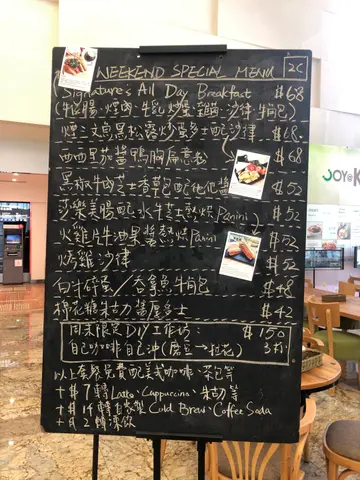 WEEKEND SPECIAL MENU 2C
Signature's All Day Breakfast $68
(牛仔腸、煙肉、牛乳炒蛋、雞腿、沙律、牛角包)
煙三文魚黑松露炒蛋多士配沙律 $68
西西里茄醬鴨胸扁意粉 $68
黑椒牛肉芝士香草包配他他醬 $52
莎樂美腸配水牛芝士熱烘Panini $52
火雞片牛油果醬熱烘Panini $52
烤雞沙律 $52
白牛仔 / 吞拿魚牛角包 $48
棉花糖朱古力醬厚多士 $42
周末限定DIY工作坊: $150
自己咖啡自己沖(磨豆→拉花) 3杯
以上套餐免費配美式咖啡、茶包等
+$7轉Latte、Cappuccino、朱古力等
+$14轉自家製Cold Brew、Coffee Soda
+$2轉凍飲
JOY@K